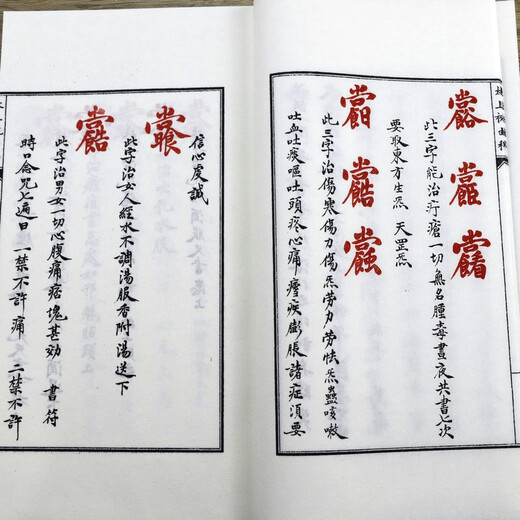 此三字能治疔瘡一切無名腫毒晝夜共書七次
要取東方生炁 天罡炁
此三字治傷寒傷力傷炁勞力勞怯炁蠱咳嗽
吐血吐痰嘔吐頭疼心痛瘧疾膨脹諸症須要
信心虔誠
此字治女人經水不調湯服香附湯送下
此字治男女一切心腹痛痞塊甚効 書符
時口念咒七遍曰 一禁不許痛 二禁不許